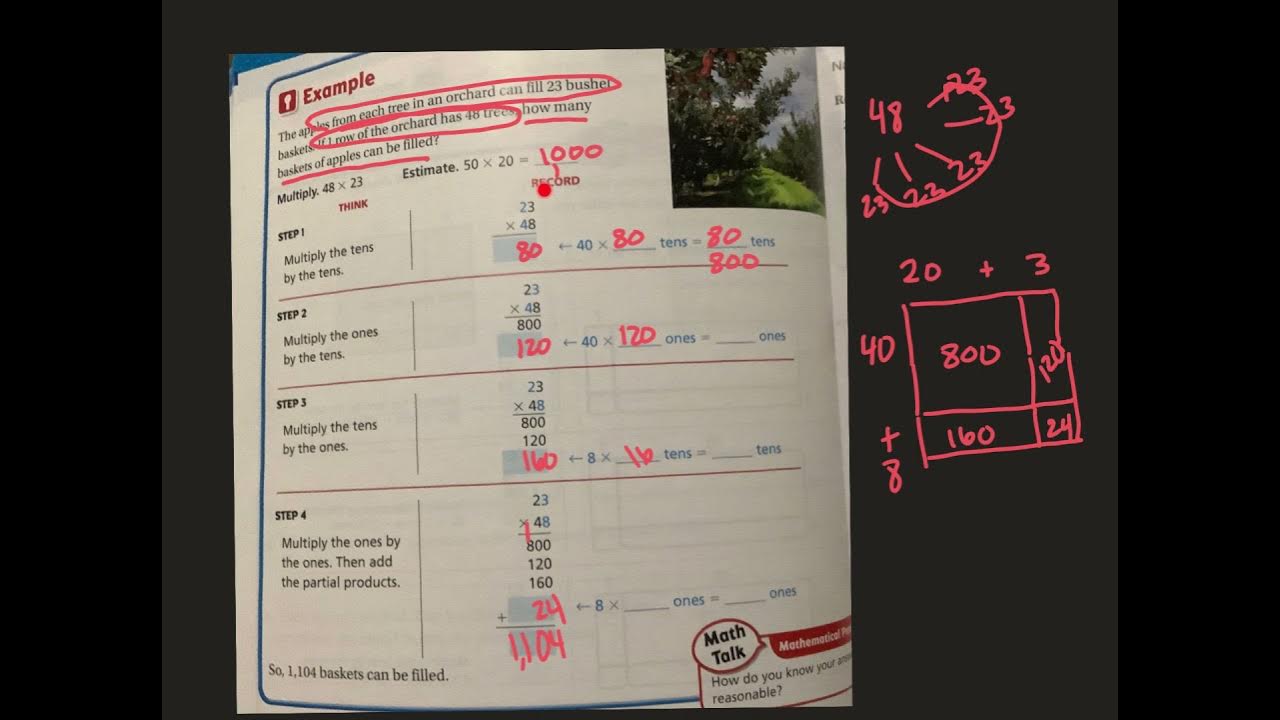 Example
The apples from each tree in an orchard can fill 23 bushel
baskets. If 1 row of the orchard has 48 trees, how many
baskets of apples can be filled?
Multiply. 48 × 23 Estimate. 50 × 20 = 1000
THINK RECORD
STEP 1
Multiply the tens
by the tens.
23
× 48
80 ← 40 × 80 tens = 80 tens
800
STEP 2
Multiply the ones
by the tens.
23
× 48
800
120 ← 40 × 120 ones = ____ ones
STEP 3
Multiply the tens
by the ones.
23
× 48
800
120
160 ← 8 × 16 tens = ____ tens
STEP 4
Multiply the ones by
the ones. Then add
the partial products.
1
23
× 48
800
120
160
+ 24 ← 8 × ____ ones = ____ ones
1,104
So, 1,104 baskets can be filled.
Math
Talk
Mathematical
How do you know your
reasonable?
48 23
23
23
23
23
20 + 3
40 800 120
+
8 160 24